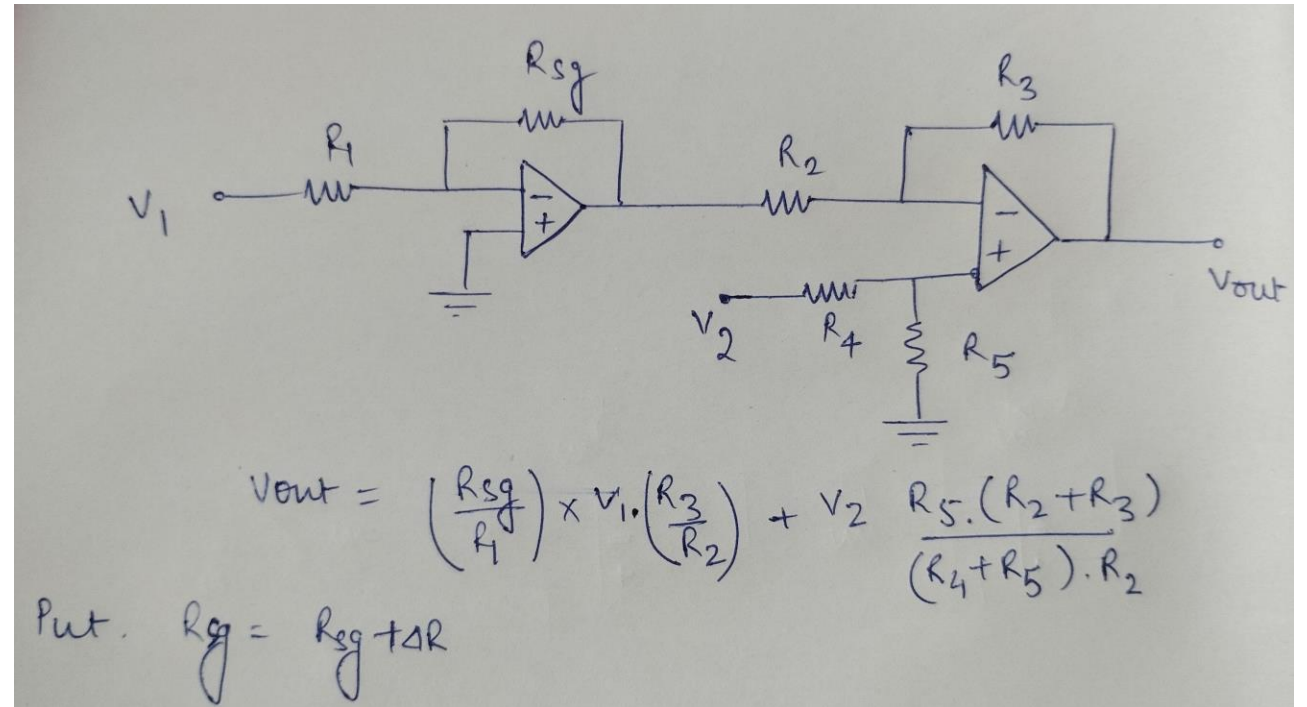 Rsg
R3
R1
R2
V1
-
+
-
+
Vout
V2
R4
R5
Vout = (Rsg/R1) × V1.(R3/R2) + V2 R5.(R2+R3)/(R4+R5).R2
Put. Rsg = Rsg+ΔR